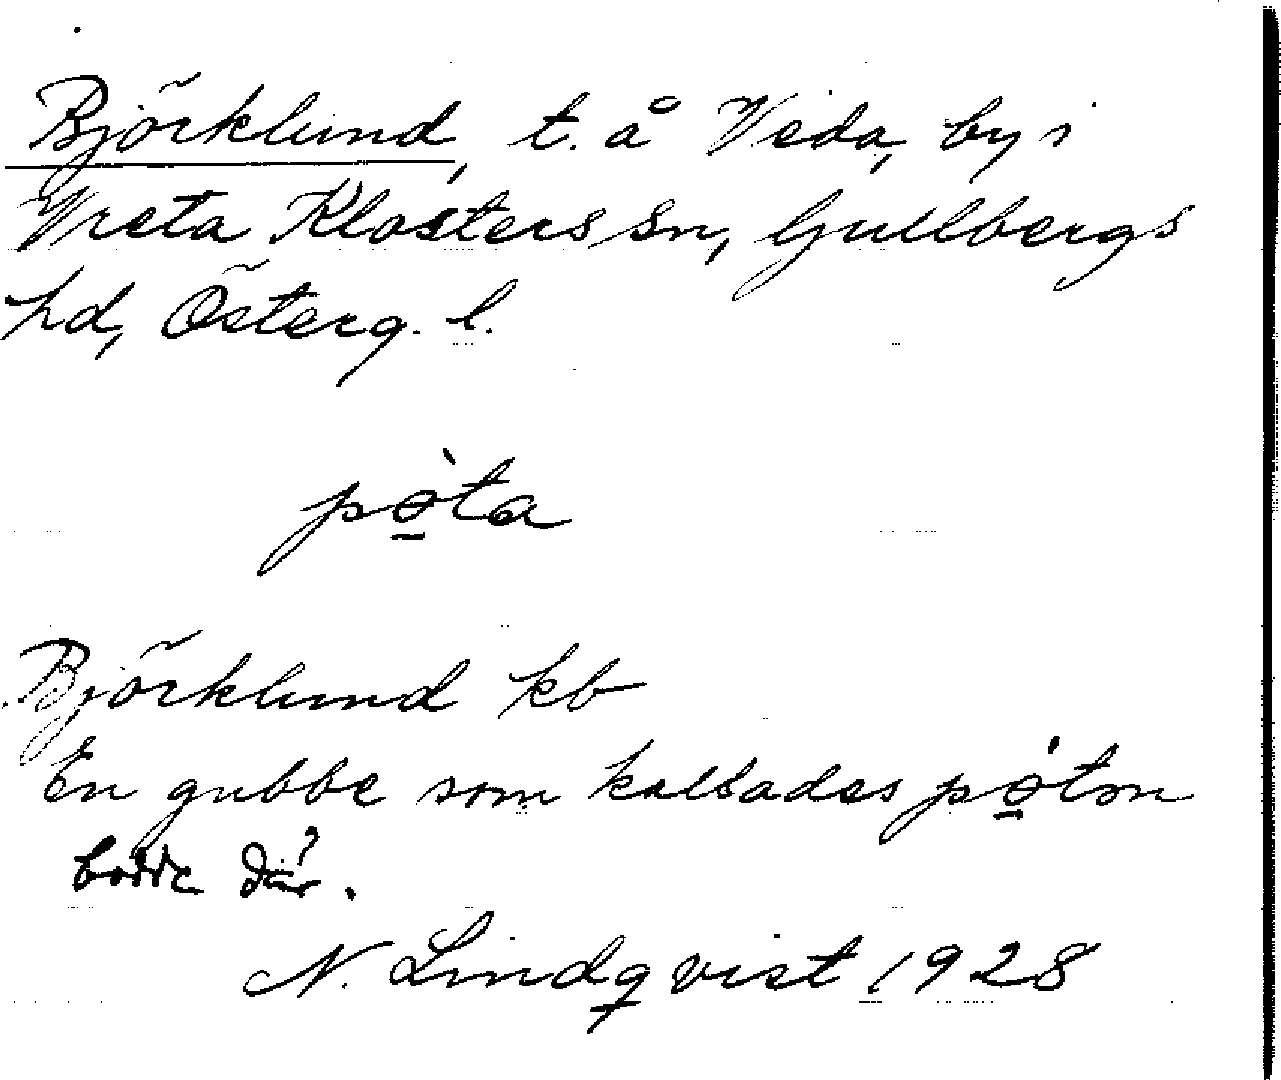 Björklund, t. å Veda, by i
Vreta Klosters sn, Gullbergs
hd, Österg. l.
pò̠ta
Björklund kb
En gubbe som kallades pó̠tn
bodde där.
N. Lindqvist 1928